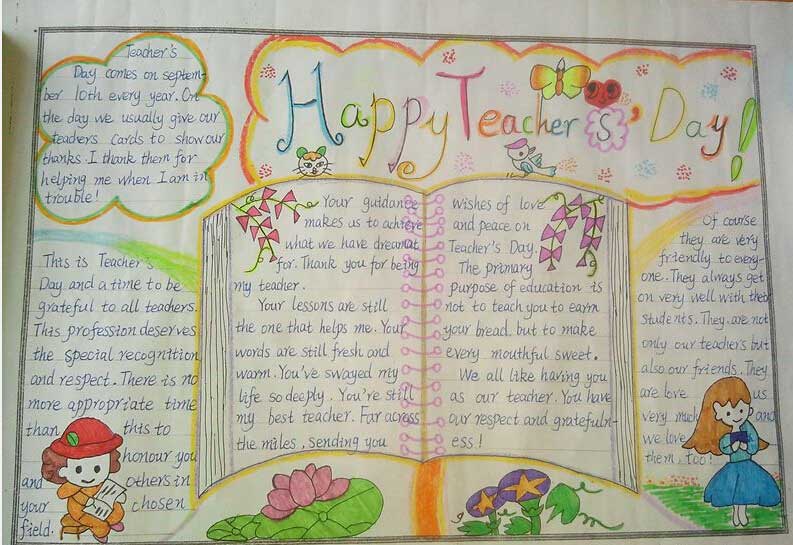 Happy Teacher's Day!
Teacher's
Day comes on septem-
ber 10th every year. On
the day we usually give our
teachers cards to show our
thanks. I thank them for
helping me when I am in
trouble!
This is Teacher's
Day and a time to be
grateful to all teachers.
This profession deserves
the special recognition
and respect. There is no
more appropriate time
than this to
honour you
and others in
your chosen
field.
Your guidance
makes us to achieve
what we have dreamt
for. Thank you for being
my teacher.
Your lessons are still
the one that helps me. Your
words are still fresh and
warm. You've swayed my
life so deeply. You're still
my best teacher. Far across
the miles, sending you
wishes of love
and peace on
Teacher's Day.
The primary
purpose of education is
not to teach you to earn
your bread. but to make
every mouthful sweet.
We all like having you
as our teacher. You have
our respect and gratefuln-
ess!
Of course
they are very
friendly to every-
one. They always get
on very well with their
students. They are not
only our teachers but
also our friends. They
are love us
very much and
we love
them, too!